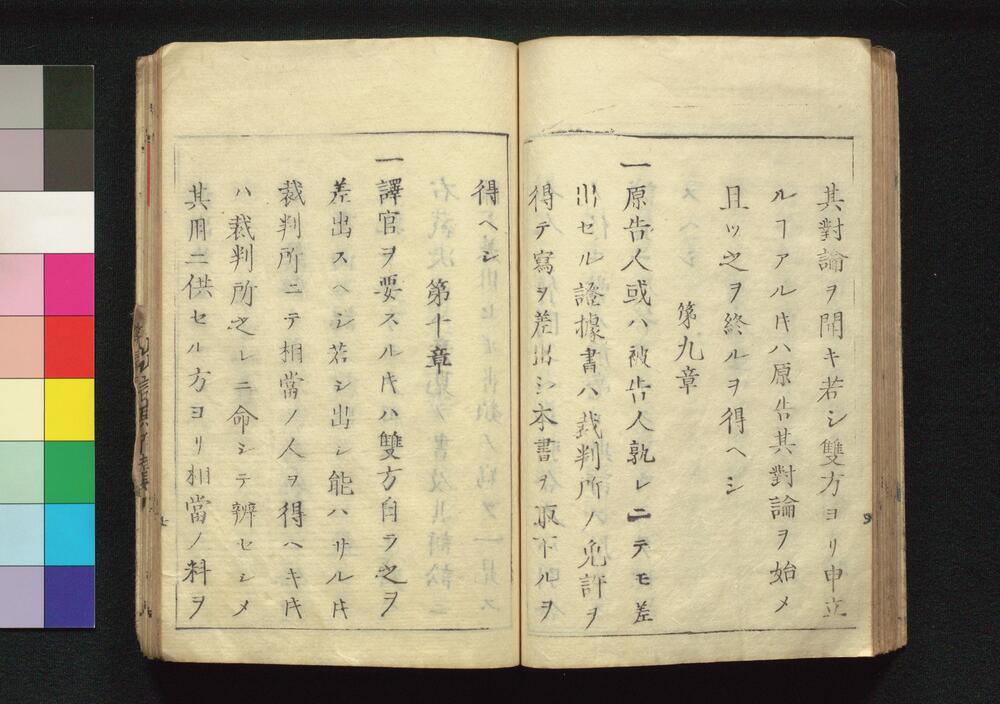 其對論ヲ開キ若シ雙方ヨリ申立
ルヿアル𬼀ハ原告其對論ヲ始メ
且ツ之ヲ終ルヲ得ヘシ
第九章
一原告人或ハ被告人孰レニテモ差
出セル證據書ハ裁判所ノ免許ヲ
得テ寫ヲ差出シ本書ヲ取下ルヲ
得ヘシ
第十章
一譯官ヲ要スルキハ雙方自ラ之ヲ
差出スヘシ若シ出シ能ハサルキ
裁判所ニテ相當ノ人ヲ得ヘキキ
ハ裁判所之レニ命シテ辨セシメ
其用ニ供セル方ヨリ相當ノ料ヲ